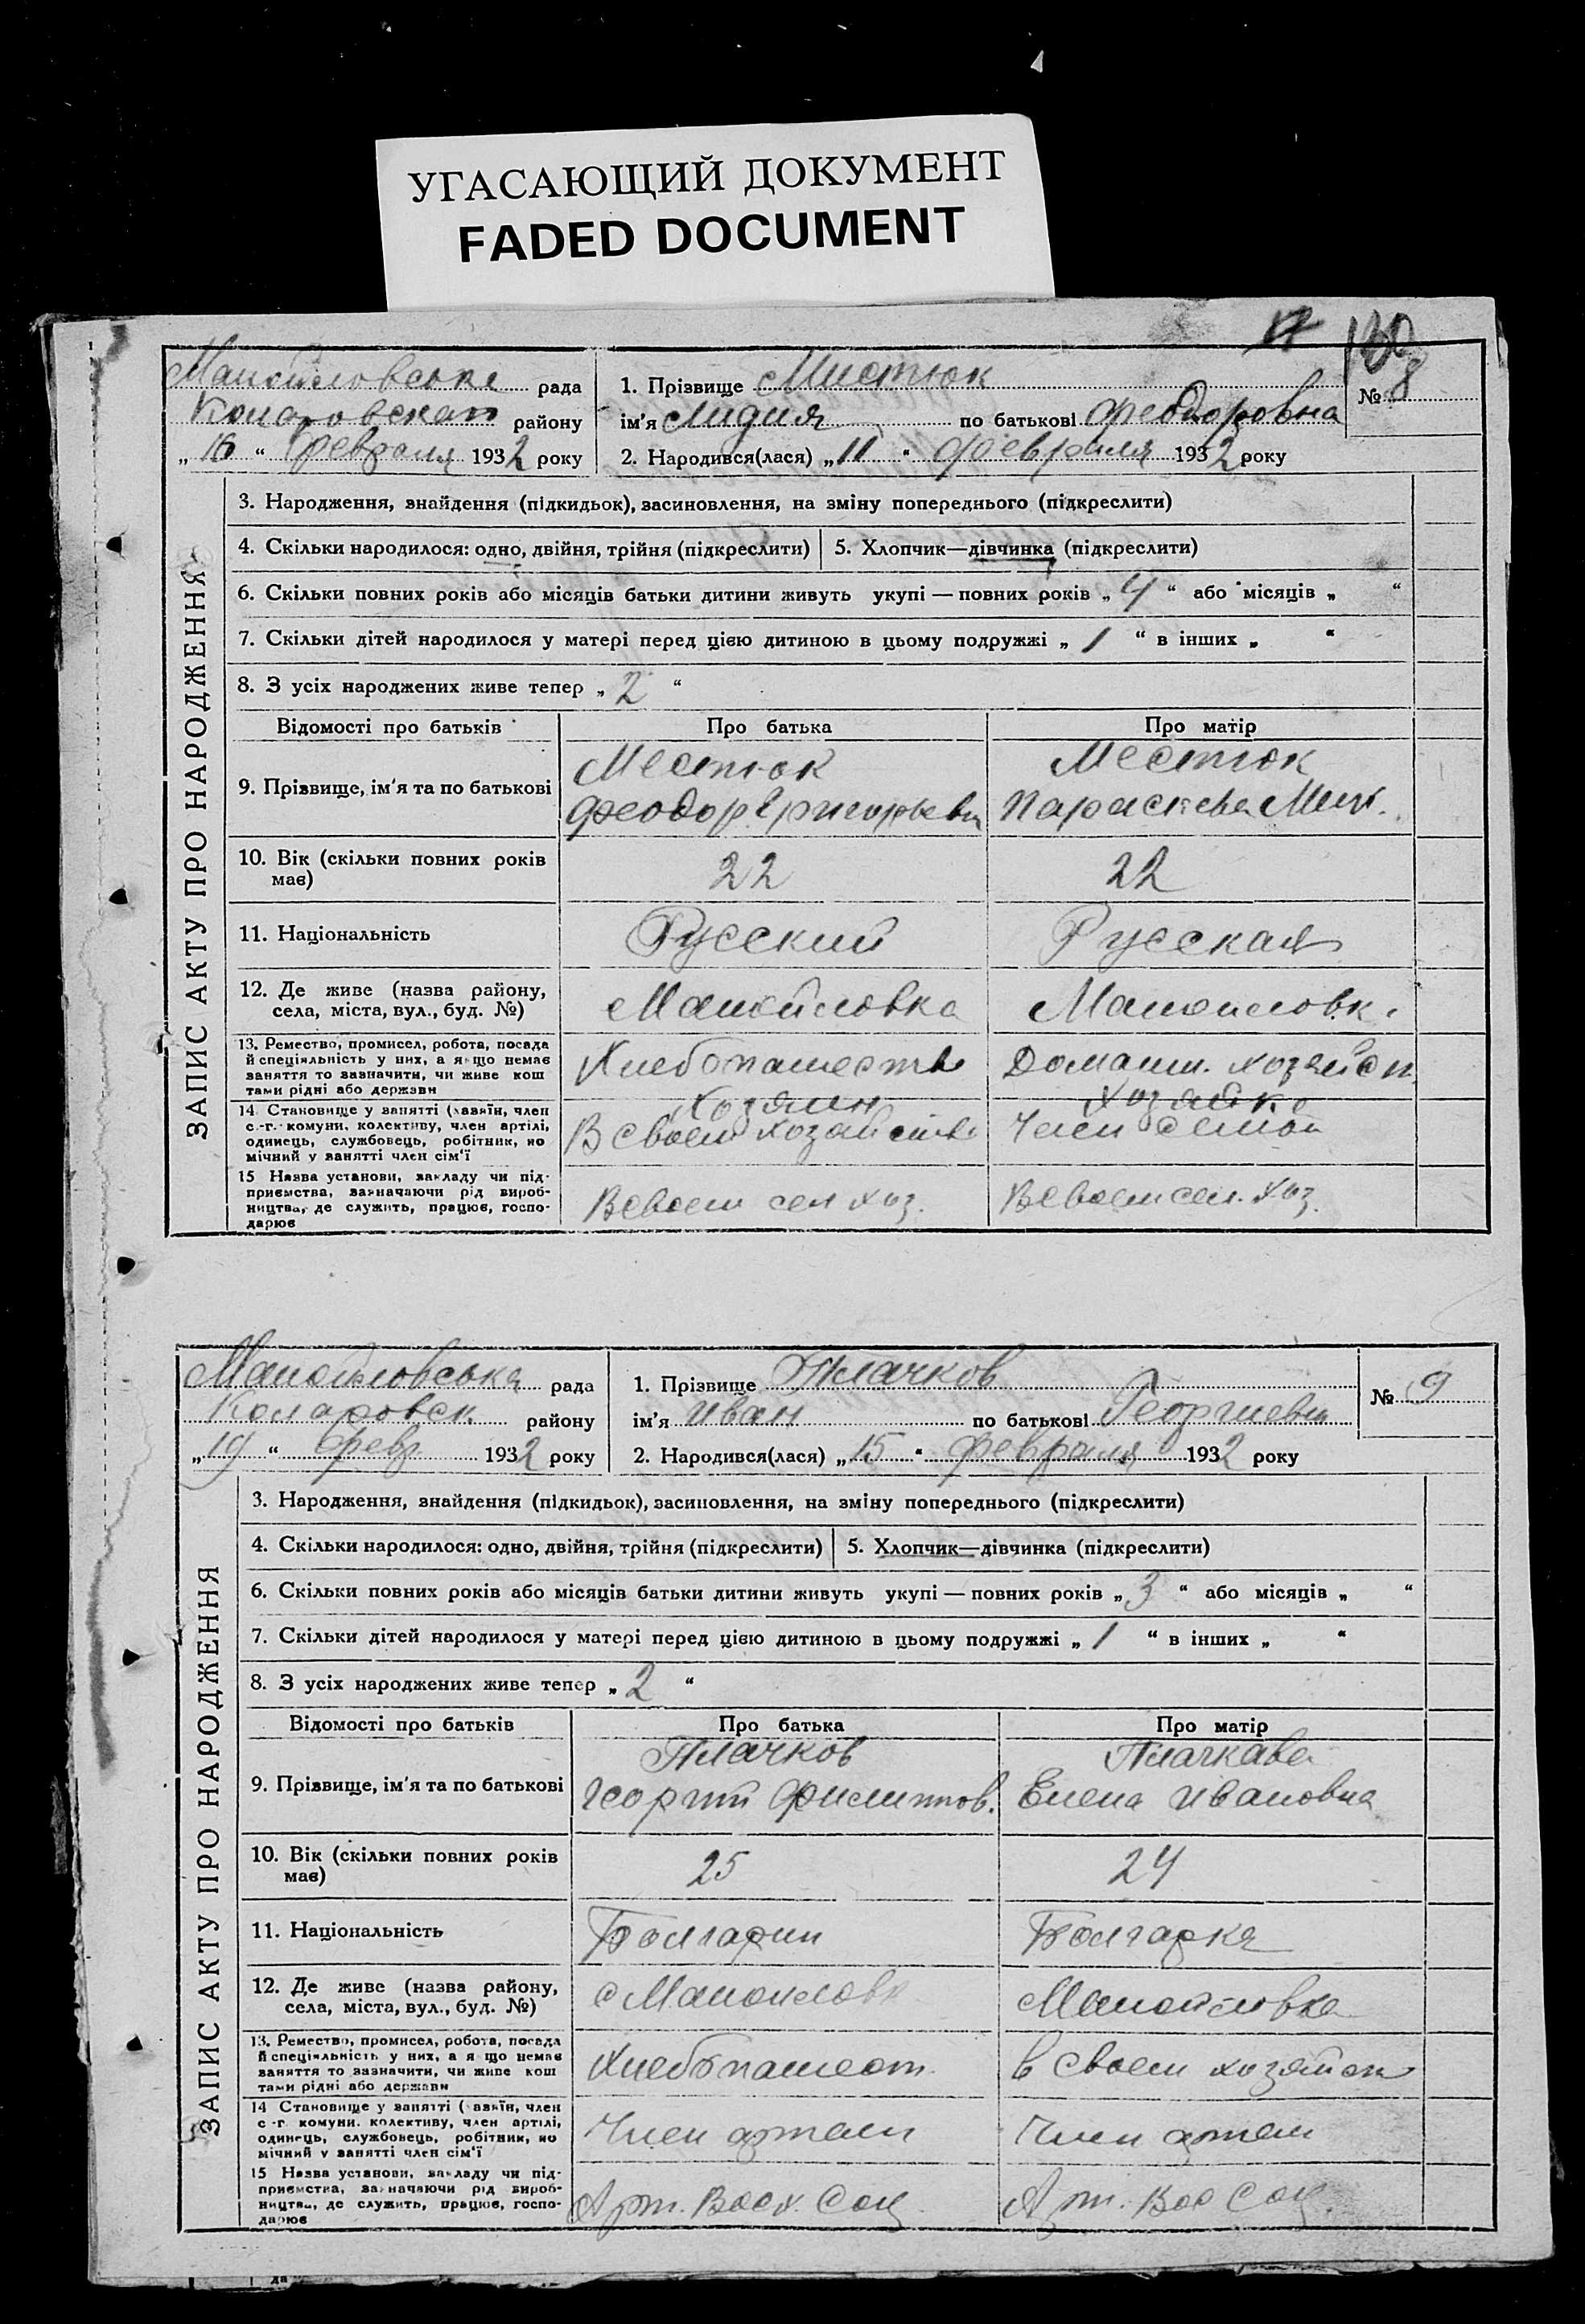 УГАСАЮЩИЙ ДОКУМЕНТ
FADED DOCUMENT
17 130
Манойловське рада
Коларовскаго району
„16“ Февраля 1932 року
1. Прізвище Мистюк
ім'я Лидия по батькові Феодоровна
2. Народився(лася) „11“ февраля 1932 року
№ 8
ЗАПИС АКТУ ПРО НАРОДЖЕННЯ
3. Народження, знайдення (підкидьок), засиновлення, на зміну попереднього (підкреслити)
4. Скільки народилося: одно, двійня, трійня (підкреслити) 5. Хлопчик—дівчинка (підкреслити)
6. Скільки повних років або місяців батьки дитини живуть укупі — повних років „4“ або місяців „ “
7. Скільки дітей народилося у матері перед цією дитиною в цьому подружжі „1“ в інших „ “
8. З усіх народжених живе тепер „2“
Відомості про батьків Про батька Про матір
9. Прізвище, ім'я та по батькові
Местюк
Феодор Григорьеви
Местюк
Параскева Мих.
10. Вік (скільки повних років
має)
22 22
11. Національність Русский Русская
12. Де живе (назва району,
села, міста, вул., буд. №)
Манойловка Манойловк.
13. Ремество, промисел, робота, посада
й спеціяльність у них, а якщо немає
заняття то зазначити, чи живе кош
тами рідні або держави
Хлебопашеств Домашн. хозяйст
14 Становище у занятті (хазяїн, член
с.-г. комуни, колективу, член артілі,
одинець, службовець, робітник, по
мічний у занятті член сім'ї
Хозяин
В своем хозяйстве
Хозяйка
Член семьи
15 Назва установи, закладу чи під-
приємства, зазначаючи рід вироб-
ництва, де служить, працює, госпо-
дарює
В своем сел хоз. В своем сел. хоз.
Манойловська рада
Коларовск. району
„19“ Февр 1932 року
1. Прізвище Плачков
ім'я Иван по батькові Георгиевич
2. Народився(лася) „15“ февраля 1932 року
№ 9
ЗАПИС АКТУ ПРО НАРОДЖЕННЯ
3. Народження, знайдення (підкидьок), засиновлення, на зміну попереднього (підкреслити)
4. Скільки народилося: одно, двійня, трійня (підкреслити) 5. Хлопчик—дівчинка (підкреслити)
6. Скільки повних років або місяців батьки дитини живуть укупі — повних років „3“ або місяців „ “
7. Скільки дітей народилося у матері перед цією дитиною в цьому подружжі „1“ в інших „ “
8. З усіх народжених живе тепер „2“
Відомості про батьків Про батька Про матір
9. Прізвище, ім'я та по батькові
Плачков
Георгий Филиппов.
Плачкава
Елена Ивановна
10. Вік (скільки повних років
має)
25 24
11. Національність Болгарин Болгарка
12. Де живе (назва району,
села, міста, вул., буд. №)
с Манойловк Манойловка
13. Ремество, промисел, робота, посада
й спеціяльність у них, а якщо немає
заняття то зазначити, чи живе кош
тами рідні або держави
Хлебопашест. в своем хозяйст
14 Становище у занятті (хазяїн, член
с-г. комуни, колективу, член артілі,
одинець, службовець, робітник, по
мічний у занятті член сім'ї
Член артели Член артели
15 Назва установи, закладу чи під-
приємства, зазначаючи рід вироб-
ництва, де служить, працює, госпо-
дарює
Арт. Восх. Соц Арт. Вос Соц.